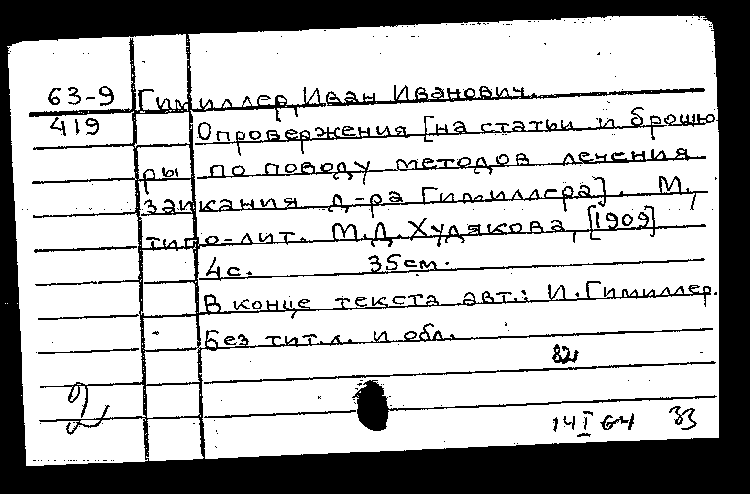 63-9 Гимиллер, Иван Иванович.
419 Опровержения [на статьи и брошю
ры по поводу методов лечения
заикания д-ра Гимиллера]. М.,
типо-лит. М.Д. Худякова, [1909]
4с. 35см.
В конце текста авт.: И. Гимиллер.
Без тит.л. и обл.
82
2
14 I 64 33